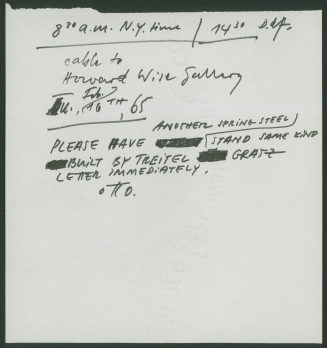 8 30 a.m. N.Y. time / 14 30 D.df.
cable to
Howard Wise Gallery
Tu., Feb 16TH, 65
ANOTHER SPRING STEEL
PLEASE HAVE STAND SAME KIND
BUILT BY TREITEL GRATZ
LETTER IMMEDIATELY.
OTTO.